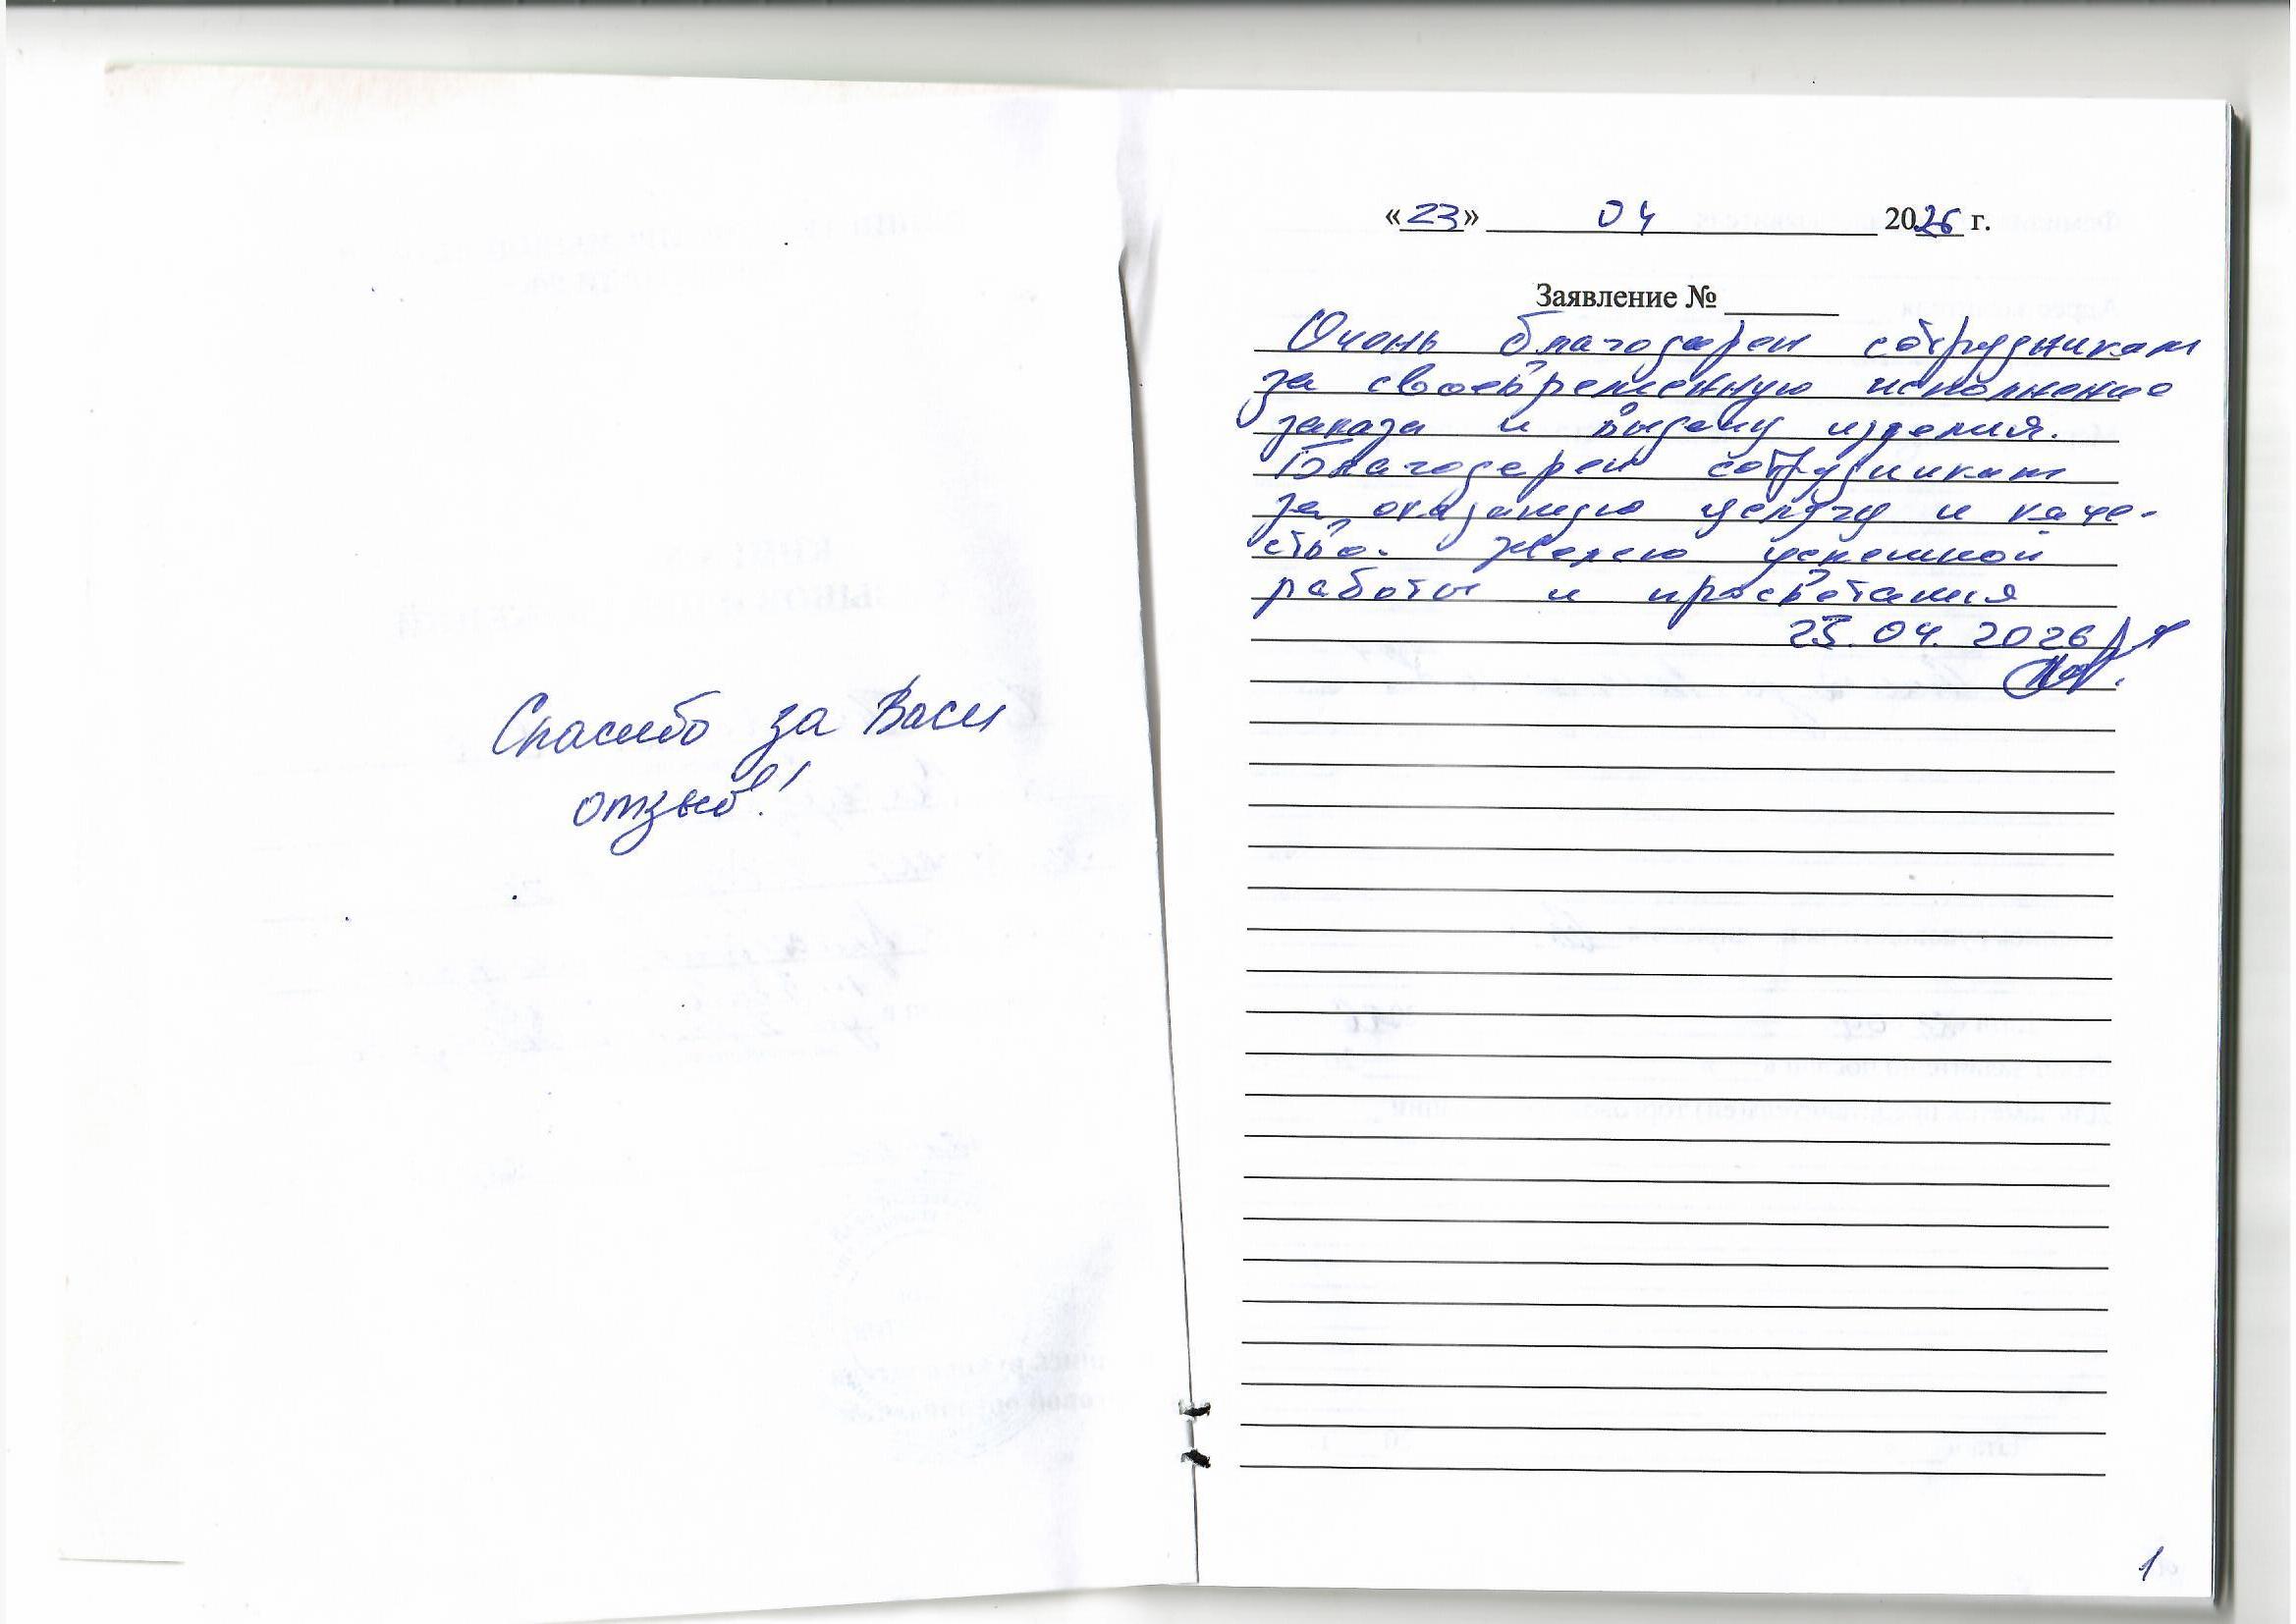 Спасибо за Ваш
отзыв!
«23» 04 2026 г.
Заявление №
Очень благодарен сотрудникам
за своевременную исполнение
заказа и выдачу изделия.
Благодарен сотрудникам
за оказанную услугу и каче-
ство. Желаю успешной
работы и процветания
23.04.2026
1